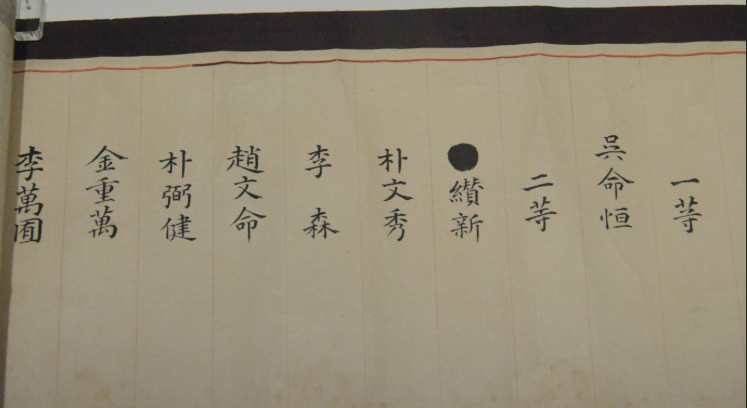 一等
吳命恒
二等
●纘新
朴文秀
李森
趙文命
朴弼健
金重萬
李萬囿